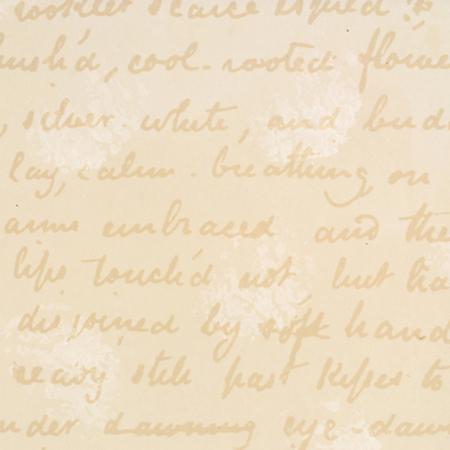 rooklet scarce espied :
ush'd, cool-rooted flowe
, silver white, and bud
lay, calm-breathing on
arms embraced and the
lips touch'd not, but ha
disjoined by soft hand
ready still past kisses to
nder dawning eye-daw